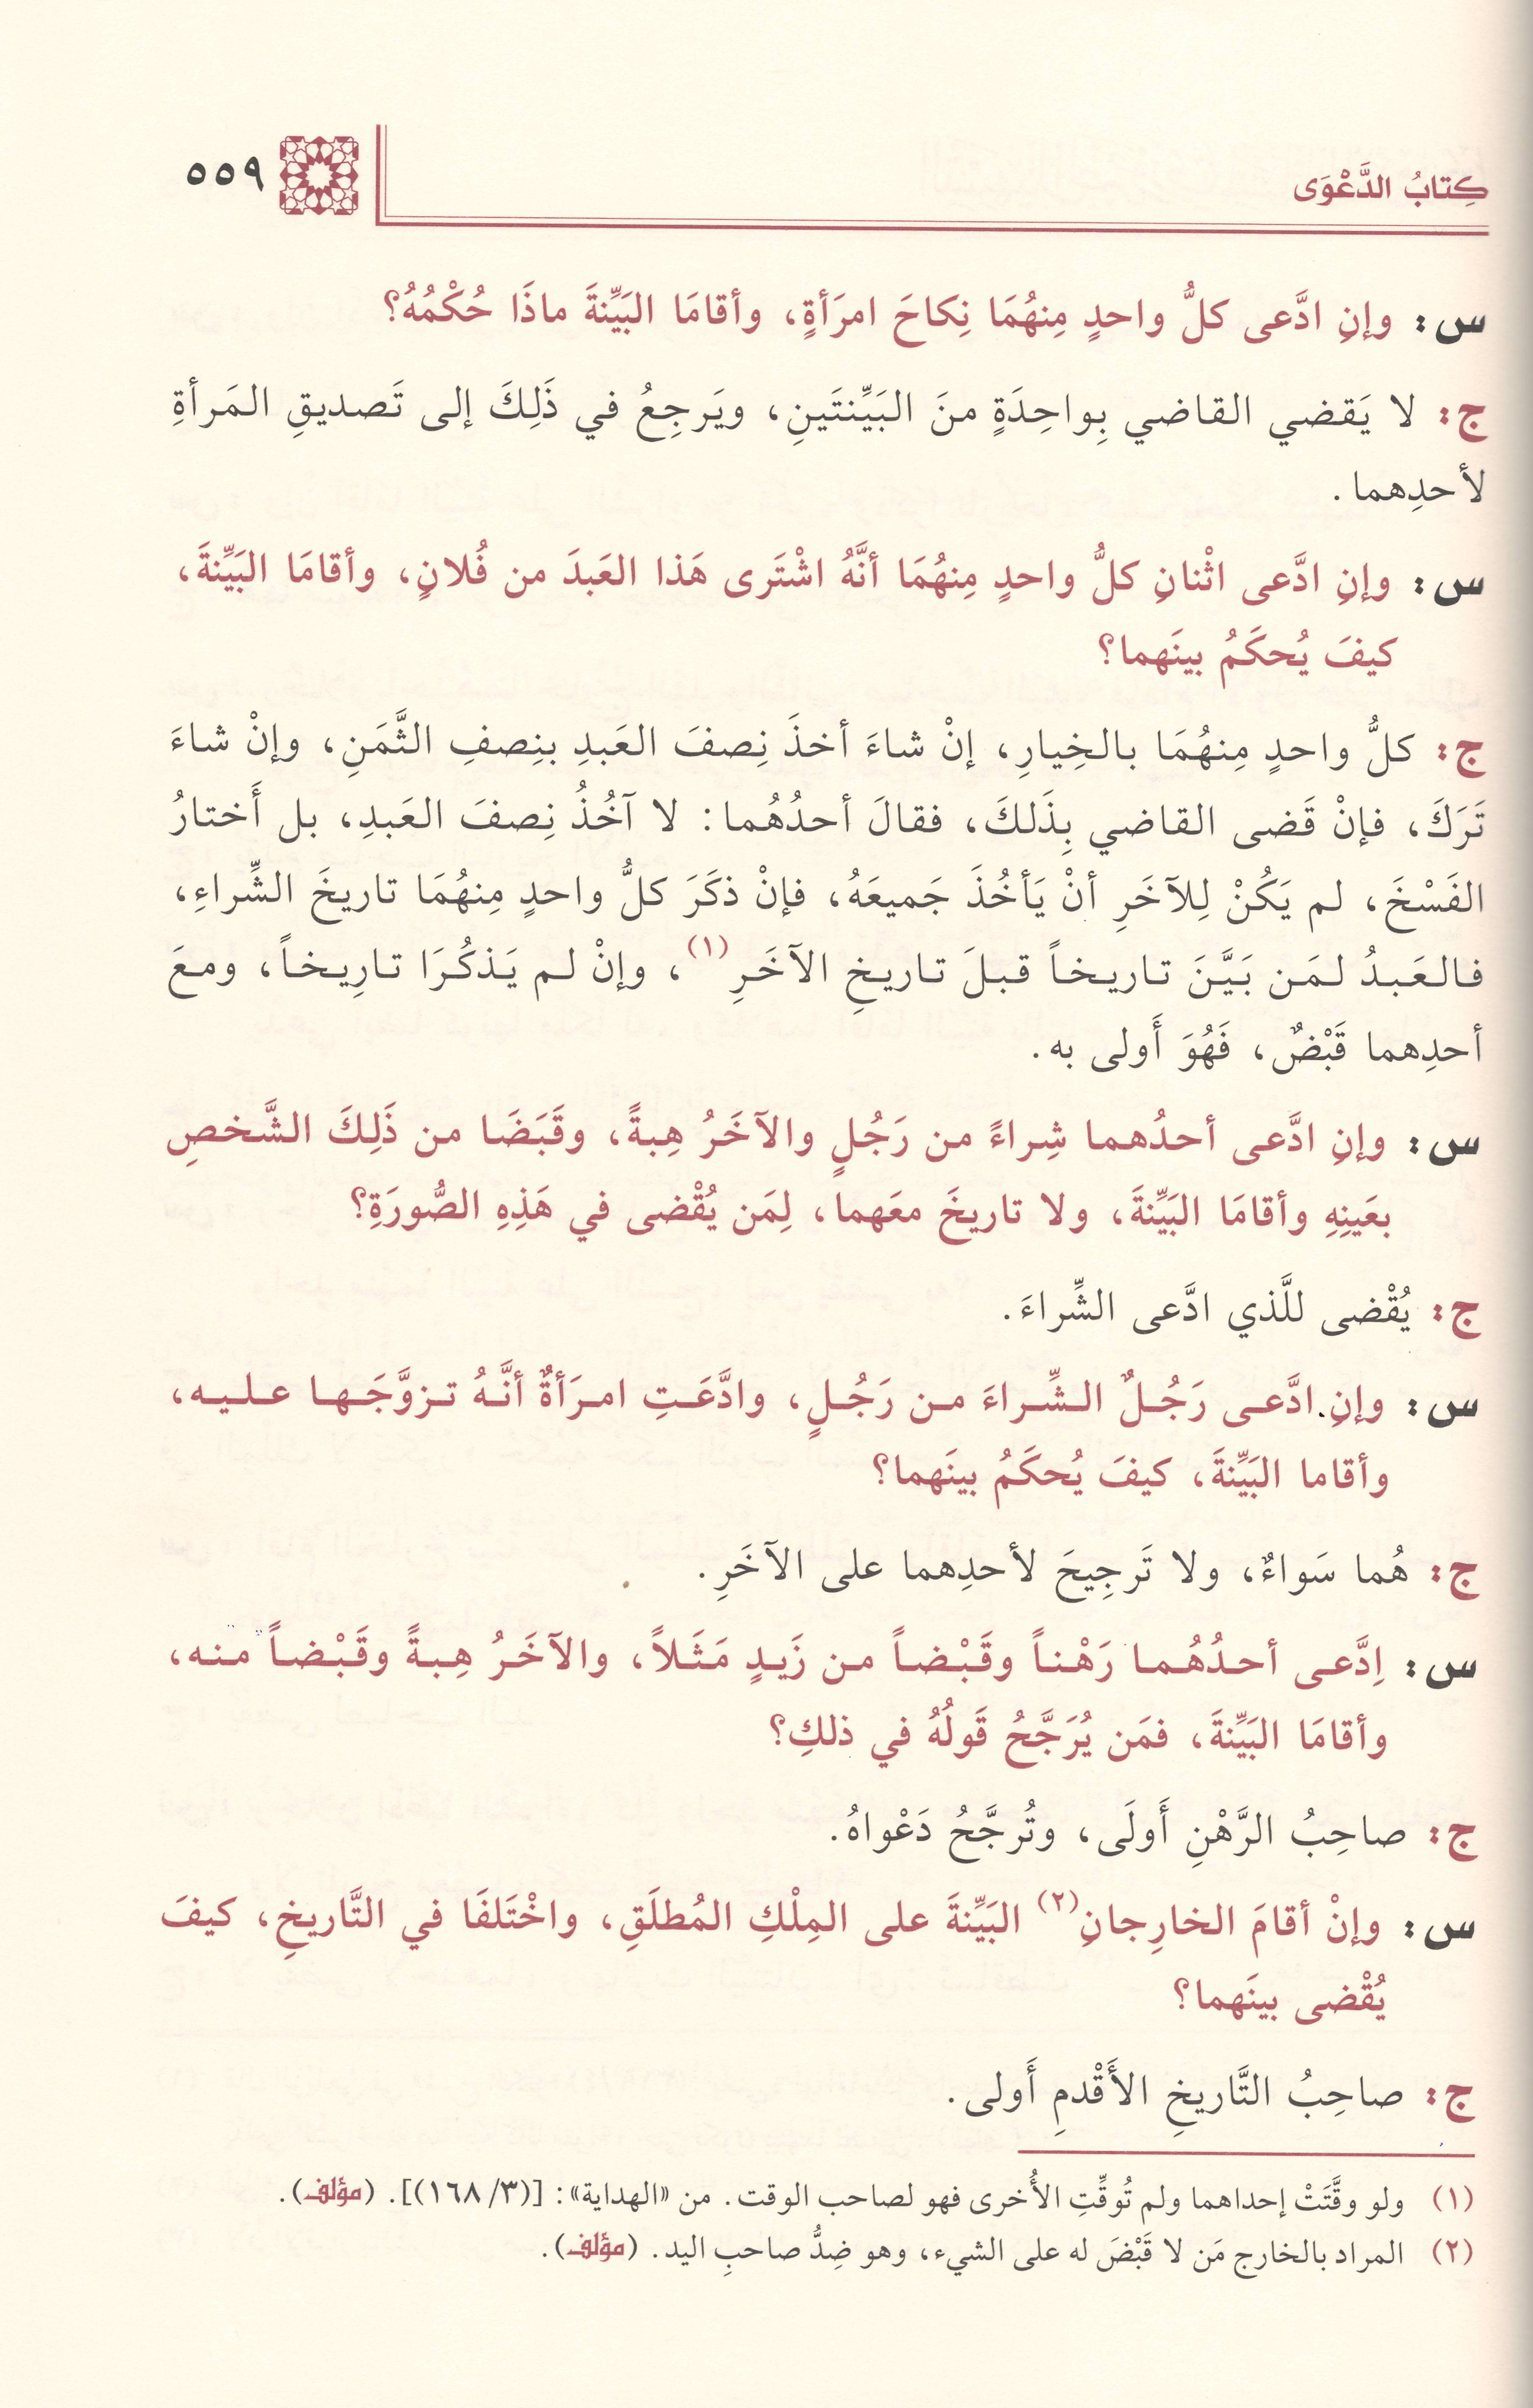 كِتابُ الدَّعْوَى
٥٥٩
س: وإنِ ادَّعى كلُّ واحدٍ مِنهُمَا نِكاحَ امرَأةٍ، وأقامَا البَيِّنةَ ماذَا حُكْمُهُ؟
ج: لا يَقضي القاضي بِواحِدَةٍ منَ البَيِّنتَينِ، ويَرجِعُ في ذَلِكَ إلى تَصديقِ المَرأةِ
لأحدِهما.
س: وإنِ ادَّعى اثْنانِ كلُّ واحدٍ مِنهُمَا أنَّهُ اشْتَرى هَذا العَبدَ من فُلانٍ، وأقامَا البَيِّنةَ،
كيفَ يُحكَمُ بينَهما؟
ج: كلُّ واحدٍ مِنهُمَا بالخِيارِ، إنْ شاءَ أخذَ نِصفَ العَبدِ بنِصفِ الثَّمَنِ، وإنْ شاءَ
تَرَكَ، فإنْ قَضى القاضي بِذَلكَ، فقالَ أحدُهُما: لا آخُذُ نِصفَ العَبدِ، بل أَختارُ
الفَسْخَ، لم يَكُنْ لِلآخَرِ أنْ يَأخُذَ جَميعَهُ، فإنْ ذكَرَ كلُّ واحدٍ مِنهُمَا تاريخَ الشِّراءِ،
فالعَبدُ لمَن بَيَّنَ تاريخاً قبلَ تاريخِ الآخَرِ(١)، وإنْ لم يَذكُرَا تارِيخاً، ومعَ
أحدِهما قَبْضٌ، فَهُوَ أَولى به.
س: وإنِ ادَّعى أحدُهما شِراءً من رَجُلٍ والآخَرُ هِبةً، وقَبَضَا من ذَلِكَ الشَّخصِ
بعَينِهِ وأقامَا البَيِّنةَ، ولا تاريخَ معَهما، لِمَن يُقْضى في هَذِهِ الصُّورَةِ؟
ج: يُقْضى للَّذي ادَّعى الشِّراءَ.
س: وإنِ ادَّعى رَجُلٌ الشِّراءَ من رَجُلٍ، وادَّعَتِ امرَأةٌ أنَّهُ تزوَّجَها عليه،
وأقاما البَيِّنةَ، كيفَ يُحكَمُ بينَهما؟
ج: هُما سَواءٌ، ولا تَرجِيحَ لأحدِهما على الآخَرِ.
س: اِدَّعى أحدُهُما رَهْناً وقَبْضاً من زَيدٍ مَثَلاً، والآخَرُ هِبةً وقَبْضاً منه،
وأقامَا البَيِّنةَ، فمَن يُرَجَّحُ قَولُهُ في ذلكِ؟
ج: صاحِبُ الرَّهْنِ أَولَى، وتُرجَّحُ دَعْواهُ.
س: وإنْ أقامَ الخارِجانِ(٢) البَيِّنةَ على المِلْكِ المُطلَقِ، واخْتَلفَا في التَّاريخِ، كيفَ
يُقْضى بينَهما؟
ج: صاحِبُ التَّاريخِ الأَقْدمِ أَولى.
(١) ولو وقَّتَتْ إحداهما ولم تُوقِّتِ الأُخرى فهو لصاحب الوقت. من «الهداية»: [(٣/ ١٦٨)]. (مؤلف).
(٢) المراد بالخارج مَن لا قَبْضَ له على الشيء، وهو ضِدُّ صاحبِ اليد. (مؤلف).